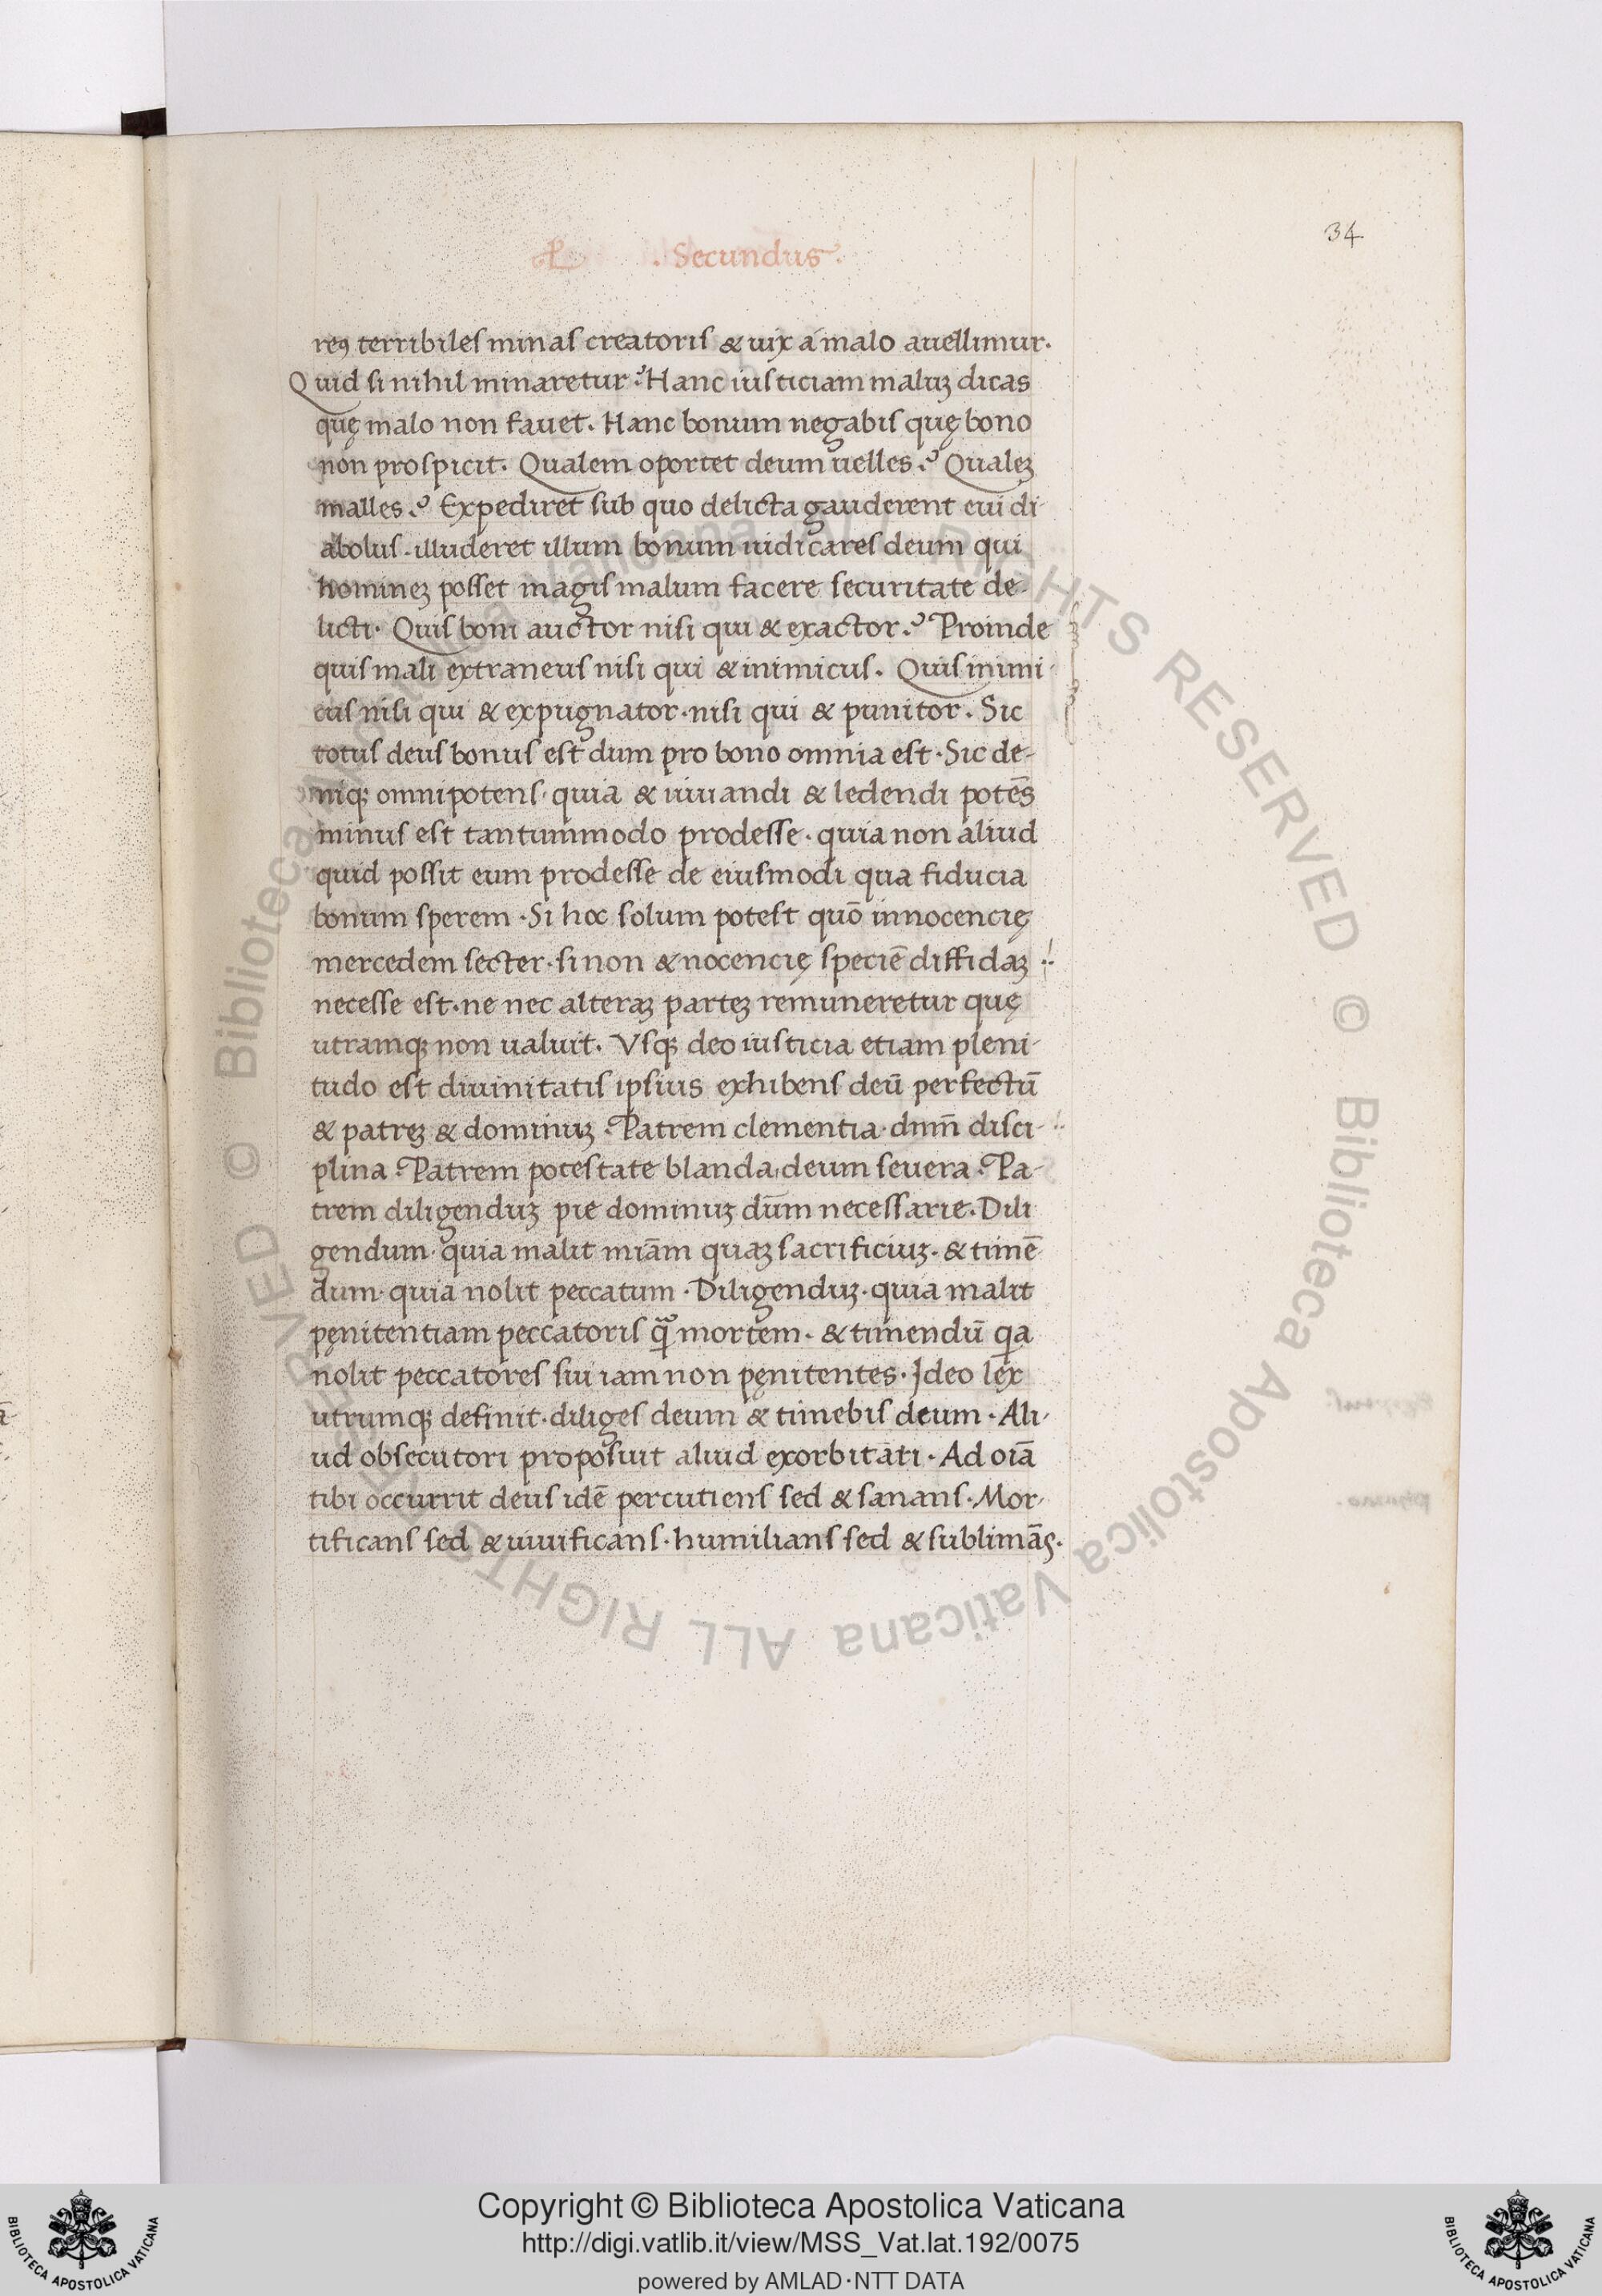 34
. Secundus .
reꝯ terribiles minas creatoris & uix a malo auellimur.
Quid si nihil minaretur? Hanc iusticiam maluꝫ dicas
quę malo non fauet. Hanc bonum negabis quę bono
non prospicit. Qualem oportet deum uelles? Qualeꝫ
malles? Expediret sub quo delicta gauderent cui di-
abolus. illuderet illum bonum iudicares deum qui
homineꝫ posset magis malum facere securitate de-
licti. Quis boni auctor nisi qui & exactor? Proinde
quis mali extraneus nisi qui & inimicus. Quis inimi-
cus nisi qui & expugnator. nisi qui & punitor. Sic
totus deus bonus est dum pro bono omnia est. Sic de-
niqꝫ omnipotens. quia & iuuandi & ledendi potēs
minus est tantummodo prodesse. quia non aliud
quid possit eum prodesse de eiusmodi qua fiducia
bonum sperem. Si hoc solum potest quō innocencię
mercedem secter. si non & nocencię speciē diffidaꝫ
necesse est. ne nec alteraꝫ parteꝫ remuneretur quę
utramqꝫ non ualuit. Vsqꝫ deo iusticia etiam pleni-
tudo est diuinitatis ipsius exhibens deū perfectū
& patreꝫ & dominuꝫ. Patrem clementia. dnm̄ disci-
plina. Patrem potestate blanda, deum seuera. Pa-
trem diligenduꝫ pie dominuꝫ dūm necessarie. Dili
gendum. quia malit miām quaꝫ sacrificiuꝫ. & timē-
dum. quia nolit peccatum. Diligenduꝫ. quia malit
pęnitentiam peccatoris qͣꝫ mortem. & timendū qa
nolit peccatores sui iam non pęnitentes. Ideo lex
utrumqꝫ definit. diliges deum & timebis deum. Ali-
ud obsecutori proposuit aliud exorbitati. Ad oīa
tibi occurrit deus idē percutiens sed & sanans. Mor-
tificans sed & uiuificans. humilians sed & sublimās.
© Biblioteca Apostolica Vaticana ALL RIGHTS RESERVED © Biblioteca Apostolica Vaticana ALL RIGHTS RESERVED
BIBLIOTECA APOSTOLICA VATICANA
Copyright © Biblioteca Apostolica Vaticana
http://digi.vatlib.it/view/MSS_Vat.lat.192/0075
powered by AMLAD·NTT DATA
BIBLIOTECA APOSTOLICA VATICANA